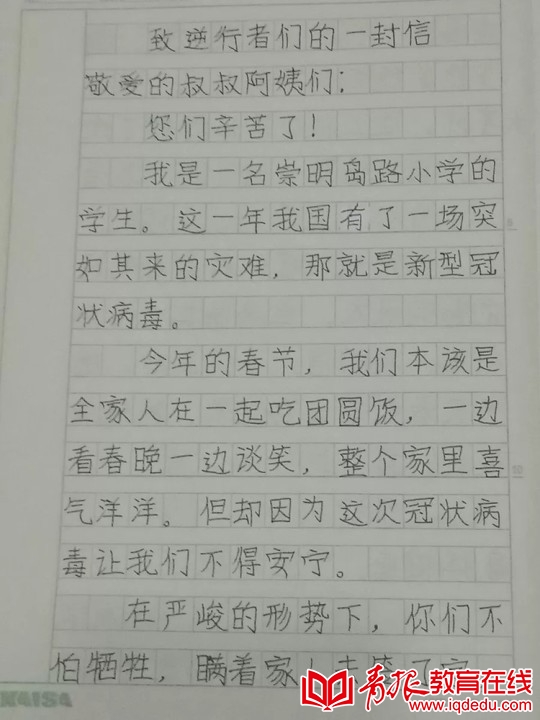 致逆行者们的一封信
敬爱的叔叔阿姨们:
您们辛苦了!
我是一名崇明岛路小学的
学生。这一年我国有了一场突
如其来的灾难,那就是新型冠
状病毒。
今年的春节,我们本该是
全家人在一起吃团圆饭,一边
看春晚一边谈笑,整个家里喜
气洋洋。但却因为这次冠状病
毒让我们不得安宁。
在严峻的形势下,你们不
怕牺牲,瞒着家人
KAISA
青报教育在线
www.iqdedu.com